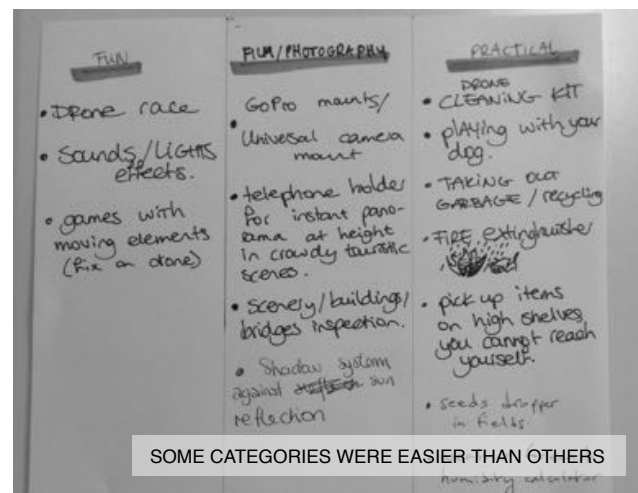 FUN
• Drone race
• Sounds/LIGHTS
effects.
• games with
moving elements
(fix on drone)
FILM/PHOTOGRAPHY
GoPro mounts/
• Universal camera
mount
• telephone holder
for instant pano-
rama at height
in crowdy touristic
scenes.
• scenery/buildings/
bridges inspection.
• Shadow system
against sun
reflection
PRACTICAL
DRONE
• CLEANING KIT
• plAying with your
dog.
• TAKING OUT
GARBAGE / recycling
• FIRE extinghuisher
• pick up items
on high shelves
you cannot reach
yourself.
• seeds dropper
in fields.
humidity calculator
SOME CATEGORIES WERE EASIER THAN OTHERS